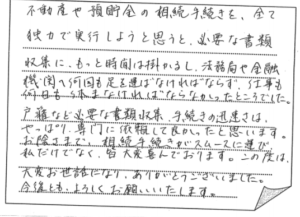 不動産や預貯金の相続手続きを、全て
独力で実行しようと思うと、必要な書類
収集に、もっと時間は掛かるし、法務局や金融
機関へ何回も足を運ばなければならず、仕事も
何日も休まなければならなかったところでした。
戸籍など必要な書類収集、手続きの迅速さは、
やっぱり、専門に依頼して良かったと思います。
お陰さまで、相続手続きがスムースに運び、
私だけでなく、皆大変喜んでおります。この度は、
大変お世話になり、ありがとうございました。
今後とも、よろしくお願いいたします。